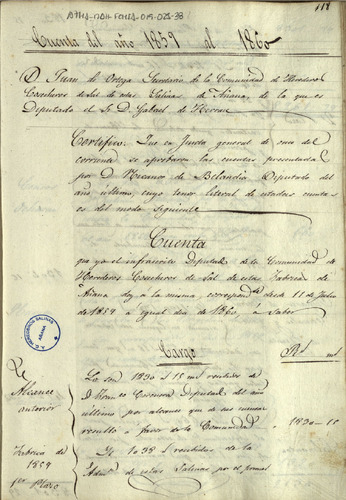 118
Cuenta del año 1859 al 1860
D. Juan de Ortega Secretario de la Comunidad de Herederos
Cosecheros de Sal de estas Salinas de Añana, de la que es
Diputado el Sr. D. Gabriel de
Certifico: Que en Junta general de once del
corriente se aprobaron las cuentas presentadas
por D. Nicanor de Belandia Diputado del
año último, cuyo tenor literal de
es del modo siguiente
Cuenta
que yo el infraescrito Diputado de la Comunidad
de Herederos Cosecheros de Sal de esta Fabrica de
Añana doy a la misma correspondte. desde 11 de Julio
de 1859 a igual dia de 1860, a saber
Cargo
Rs. ms.
Alcance
anterior
Lo son 1830 rs 15 ms recibidos de
D. Diputado del año
ultimo por alcance que de sus cuentas
resultó a favor de la Comunidad
1830-15
Fabrica de
1859
1er. Plazo
recibidos de la
Admon. de estas Salinas por el primer